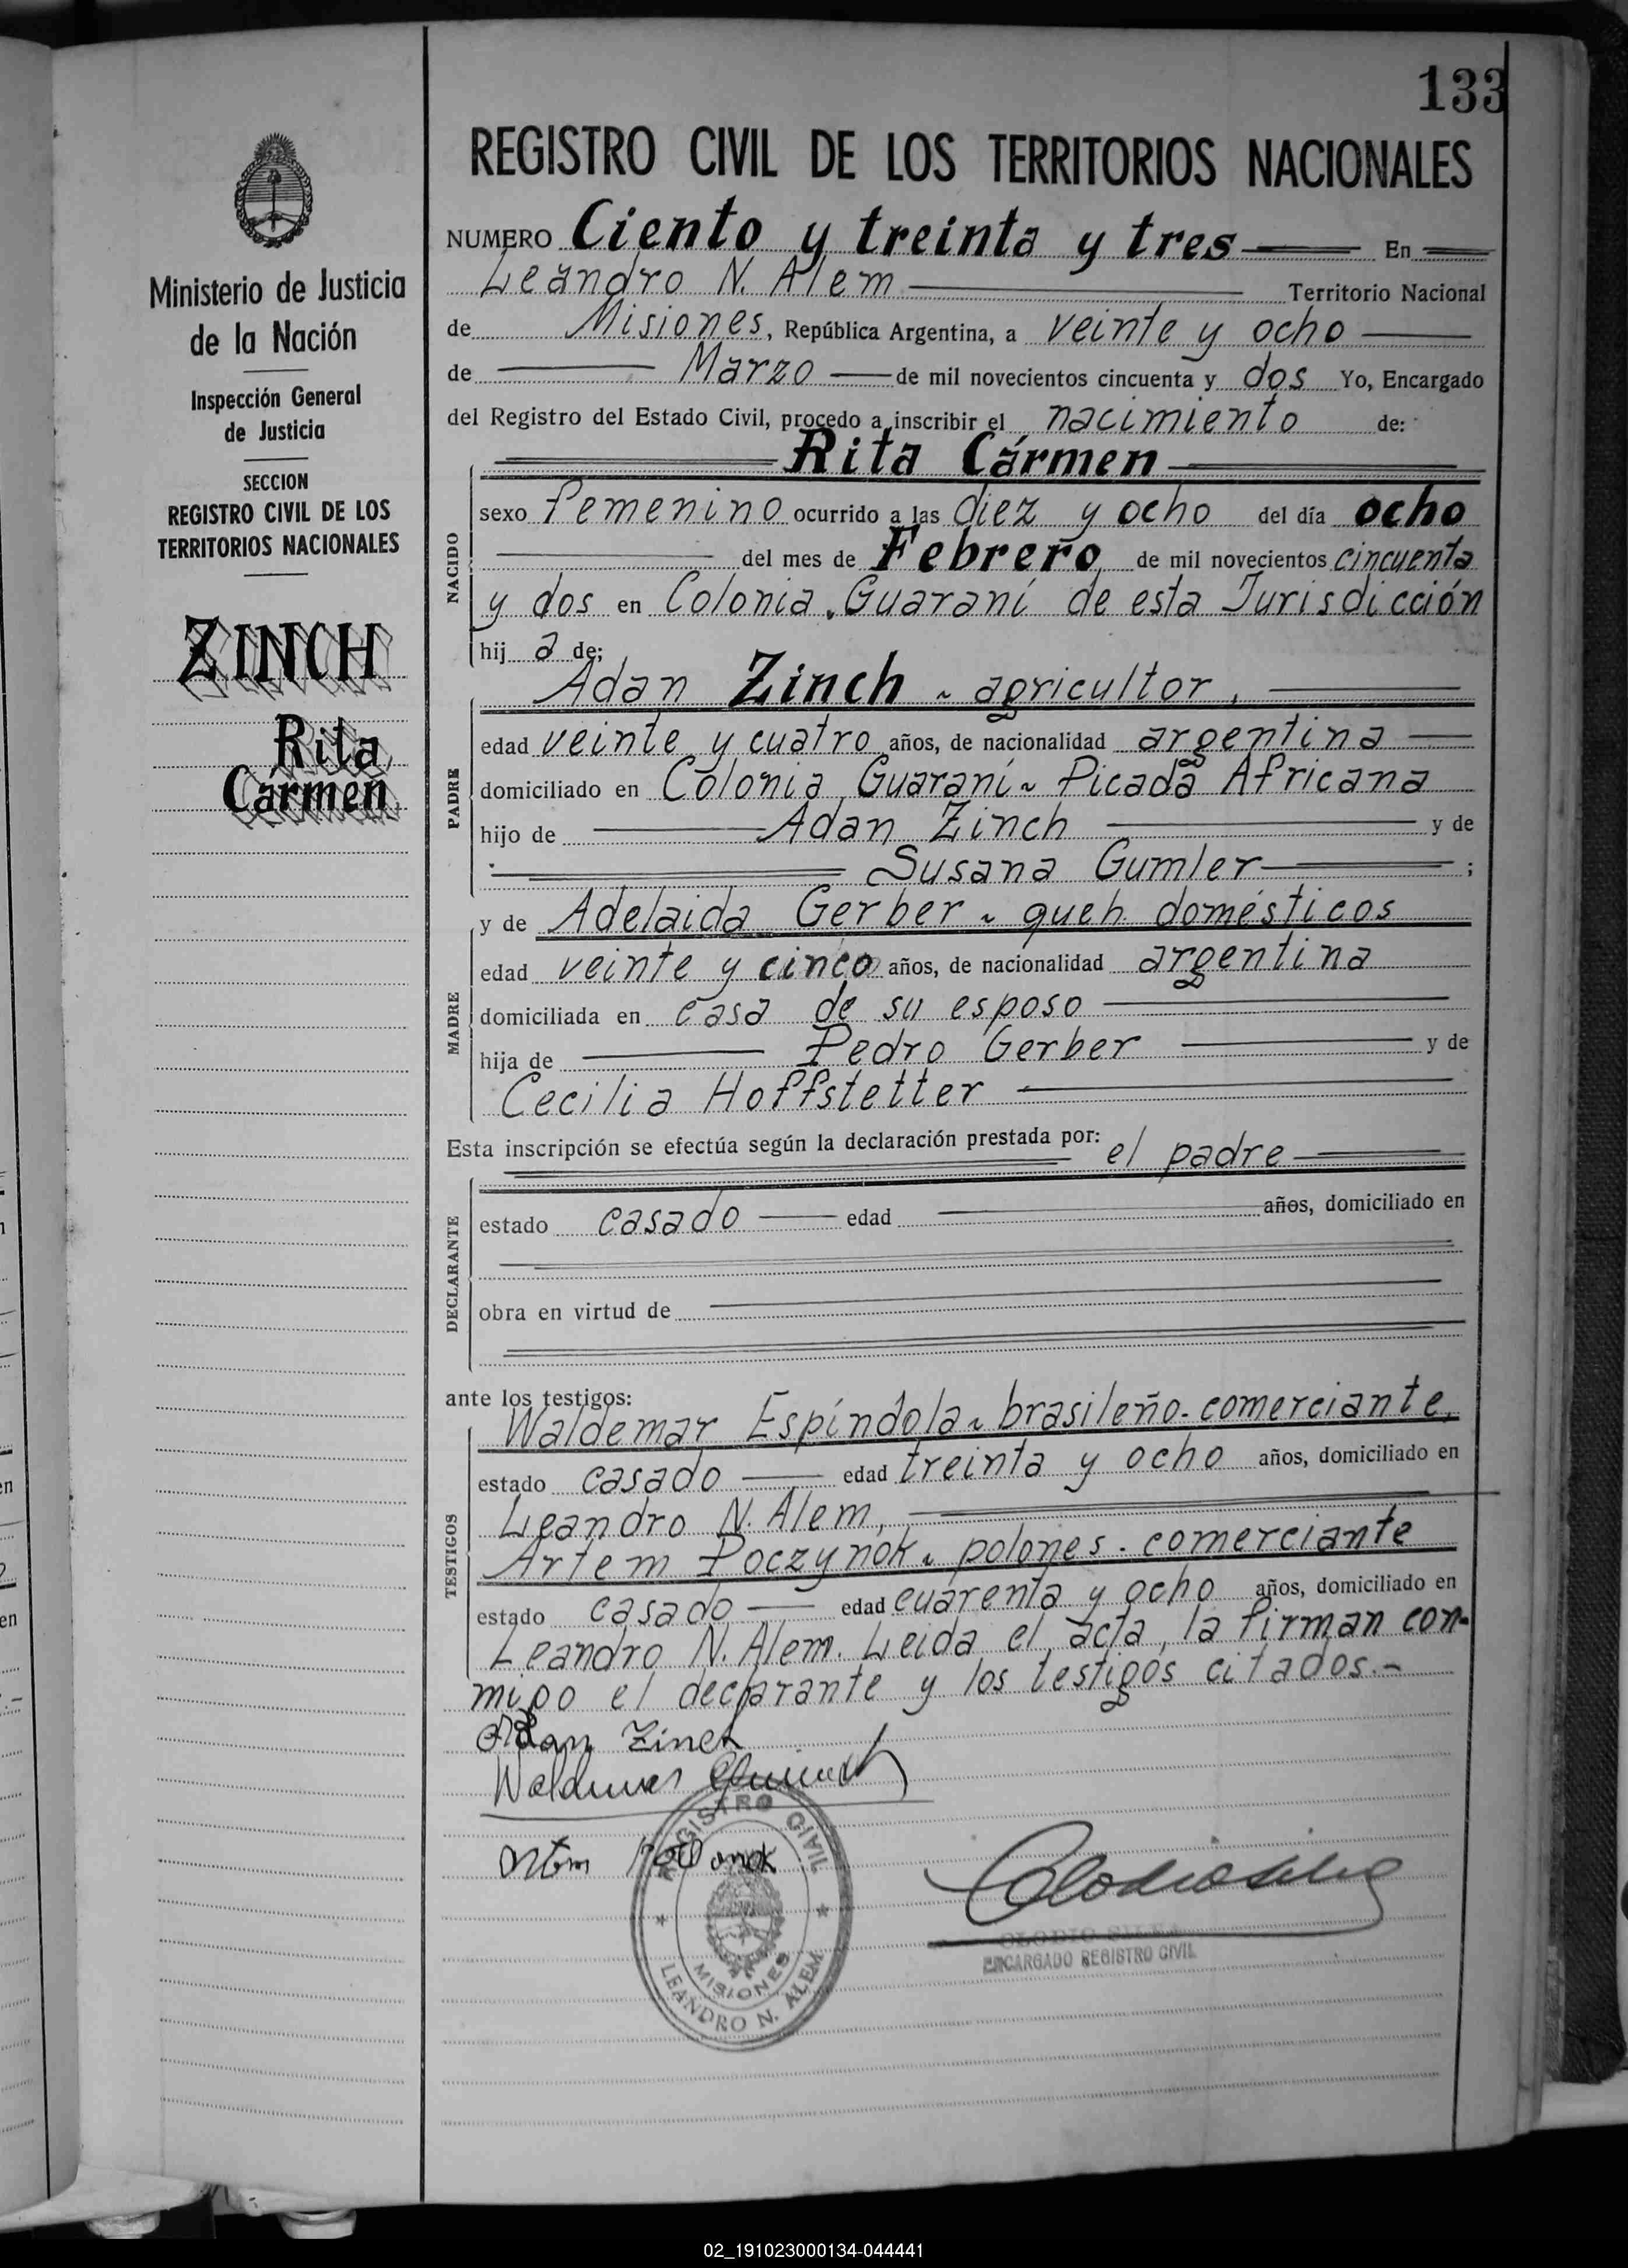 133
REGISTRO CIVIL DE LOS TERRITORIOS NACIONALES
Ministerio de Justicia
de la Nación
Inspección General
de Justicia
SECCION
REGISTRO CIVIL DE LOS
TERRITORIOS NACIONALES
ZINCH
Rita
Cármen
NUMERO Ciento y treinta y tres En
Leandro N. Alem Territorio Nacional
de Misiones, República Argentina, a veinte y ocho
de Marzo de mil novecientos cincuenta y dos Yo, Encargado
del Registro del Estado Civil, procedo a inscribir el nacimiento de:
Rita Cármen
NACIDO
sexo femenino ocurrido a las diez y ocho del día ocho
del mes de Febrero de mil novecientos cincuenta
y dos en Colonia Guaraní de esta Jurisdicción
hij a de;
PADRE
Adan Zinch ~ agricultor,
edad veinte y cuatro años, de nacionalidad argentina
domiciliado en Colonia Guaraní ~ Picada Africana
hijo de Adan Zinch y de
Susana Gumler ;
MADRE
y de Adelaida Gerber ~ queh. domésticos
edad veinte y cinco años, de nacionalidad argentina
domiciliada en casa de su esposo
hija de Pedro Gerber y de
Cecilia Hoffstetter
Esta inscripción se efectúa según la declaración prestada por: el padre
DECLARANTE
estado casado edad años, domiciliado en
obra en virtud de
ante los testigos:
TESTIGOS
Waldemar Espíndola ~ brasileño - comerciante,
estado casado edad treinta y ocho años, domiciliado en
Leandro N. Alem,
Artem Poczynok ~ polones - comerciante
estado casado edad cuarenta y ocho años, domiciliado en
Leandro N. Alem. Leida el acta, la firman con-
migo el declarante y los testigos citados.-
Adan Zinch
REGISTRO CIVIL
MISIONES
LEANDRO N. ALEM
CLODIO SILVA
ENCARGADO REGISTRO CIVIL
02_191023000134-044441